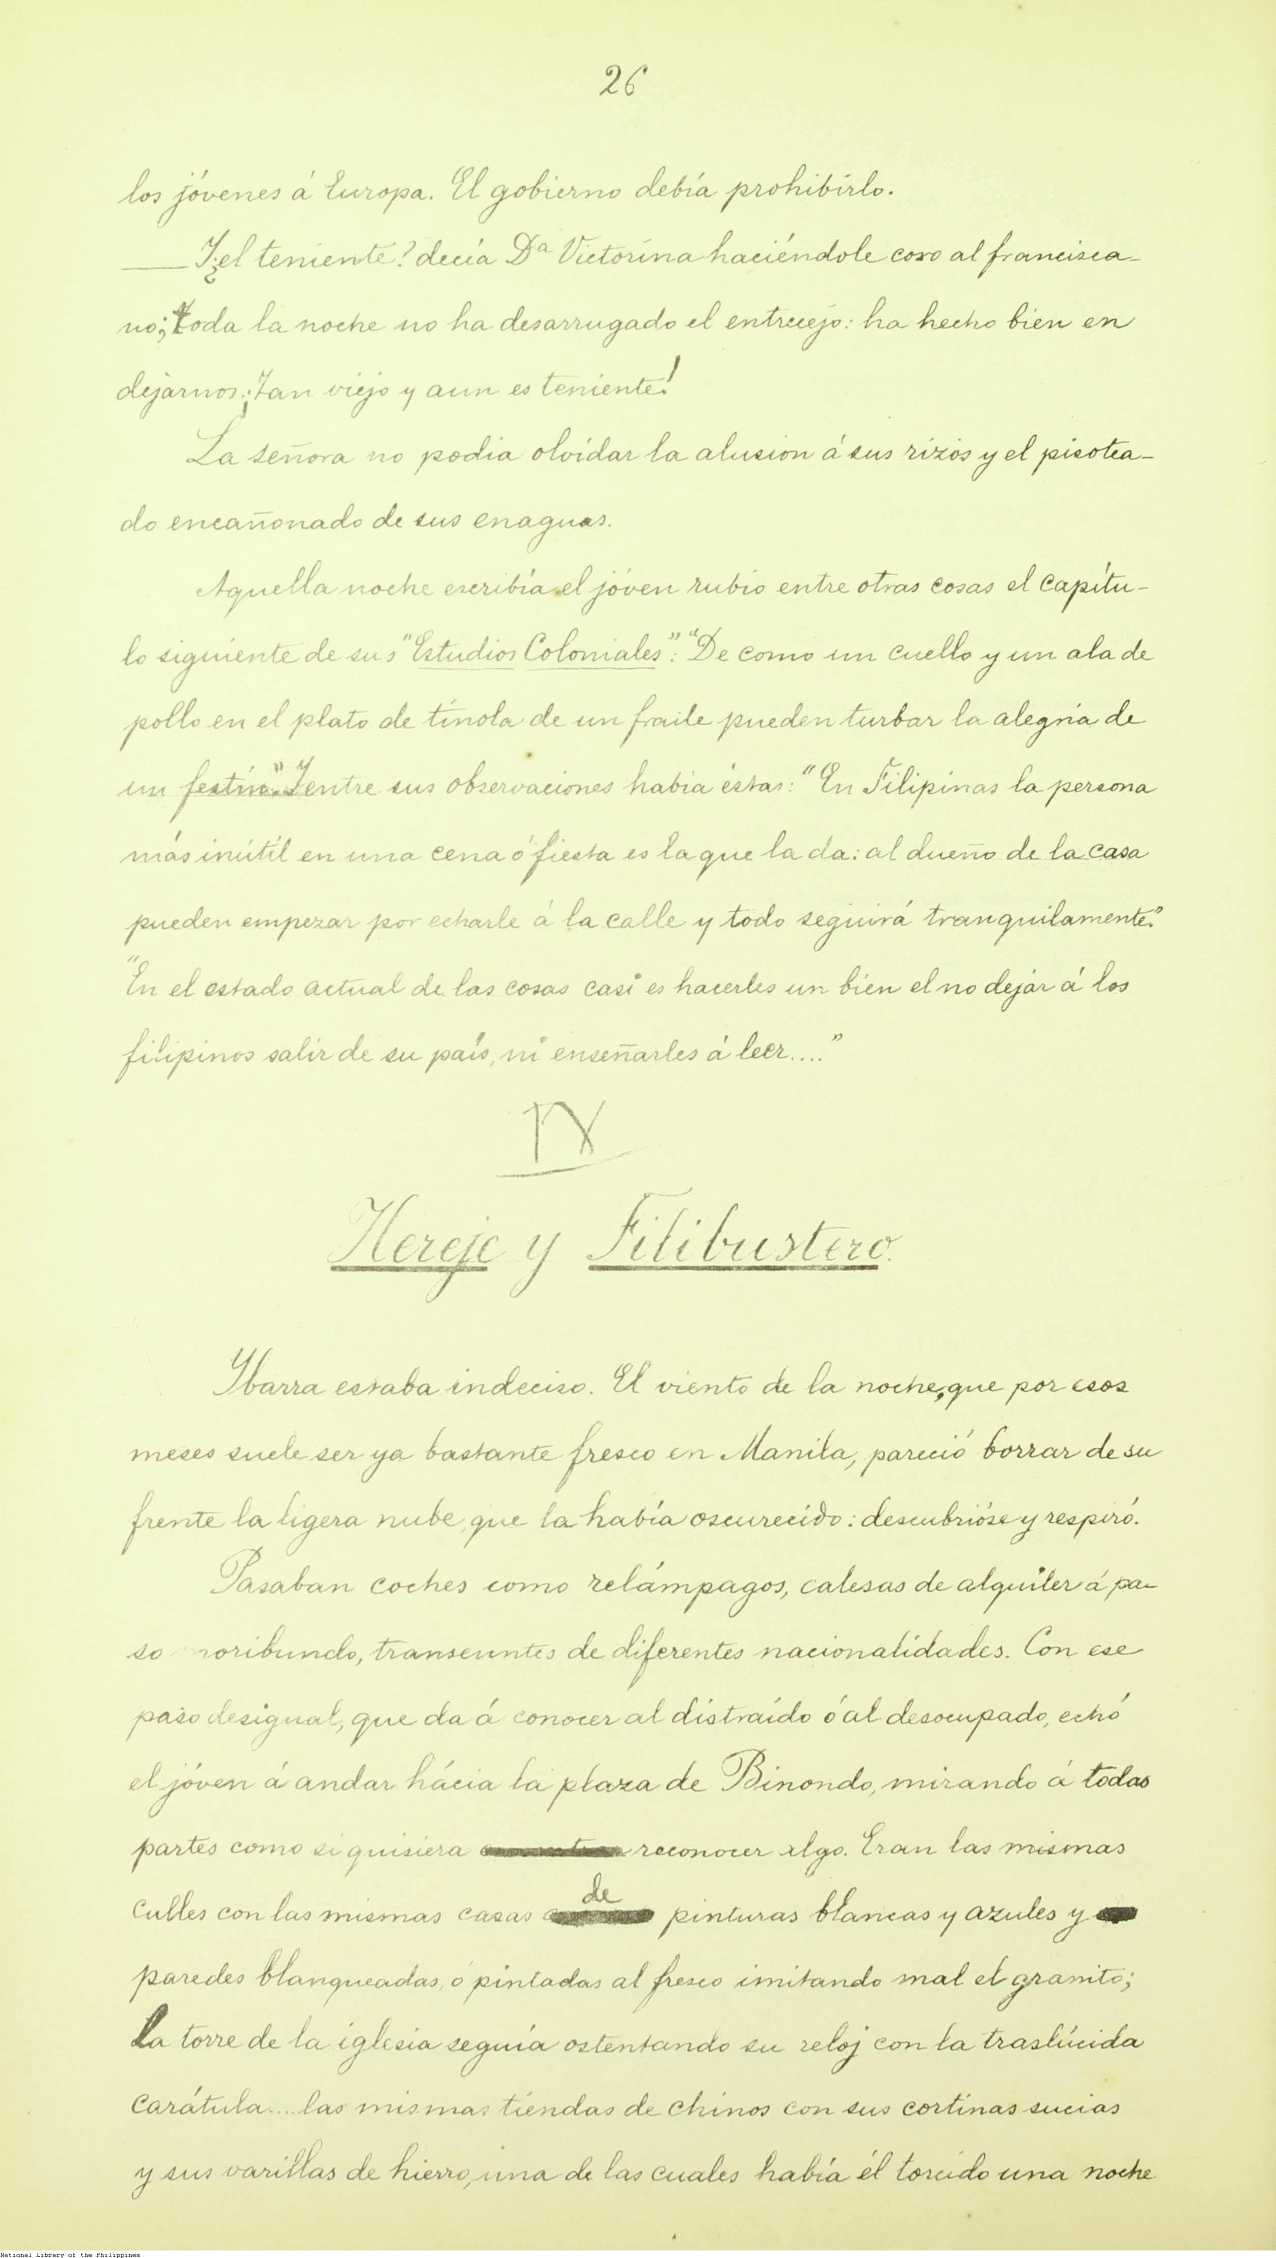 26
los jóvenes á Europa. El gobierno debía prohibirlo.
— Y ¿el teniente? decía Dª Victorina haciéndole coro al francisca-
no; toda la noche no ha desarrugado el entrecejo: ha hecho bien en
dejarnos ¡Tan viejo y aun es teniente!
La señora no podia olvidar la alusion á sus rizos y el pisotea-
do encañonado de sus enaguas.
Aquella noche escribía el jóven rubio entre otras cosas el capítu-
lo siguiente de sus "Estudios Coloniales": "De como un cuello y un ala de
pollo en el plato de tinola de un fraile pueden turbar la alegría de
un festín." Y entre sus observaciones habia éstas: "En Filipinas la persona
más inútil en una cena ó fiesta es la que la da: al dueño de la casa
pueden empezar por echarle á la calle y todo seguirá tranquilamente."
"En el estado actual de las cosas casi es hacerles un bien el no dejar á los
filipinos salir de su país, ni enseñarles á leer...."
IV
Hereje y Filibustero.
Ybarra estaba indeciso. El viento de la noche, que por esos
meses suele ser ya bastante fresco en Manila, pareció borrar de su
frente la ligera nube, que la había oscurecido: descubrióse y respiró.
Pasaban coches como relámpagos, calesas de alquiler á pa-
so moribundo, transeuntes de diferentes nacionalidades. Con ese
paso desigual, que da á conocer al distraído ó al desocupado, echó
el jóven á andar hácia la plaza de Binondo, mirando á todas
partes como si quisiera reconocer algo. Eran las mismas
calles con las mismas casas de pinturas blancas y azules y
paredes blanqueadas, ó pintadas al fresco imitando mal el granito;
la torre de la iglesia seguía ostentando su reloj con la traslúcida
carátula.... las mismas tiendas de chinos con sus cortinas sucias
y sus varillas de hierro, una de las cuales había él torcido una noche
National Library of the Philippines